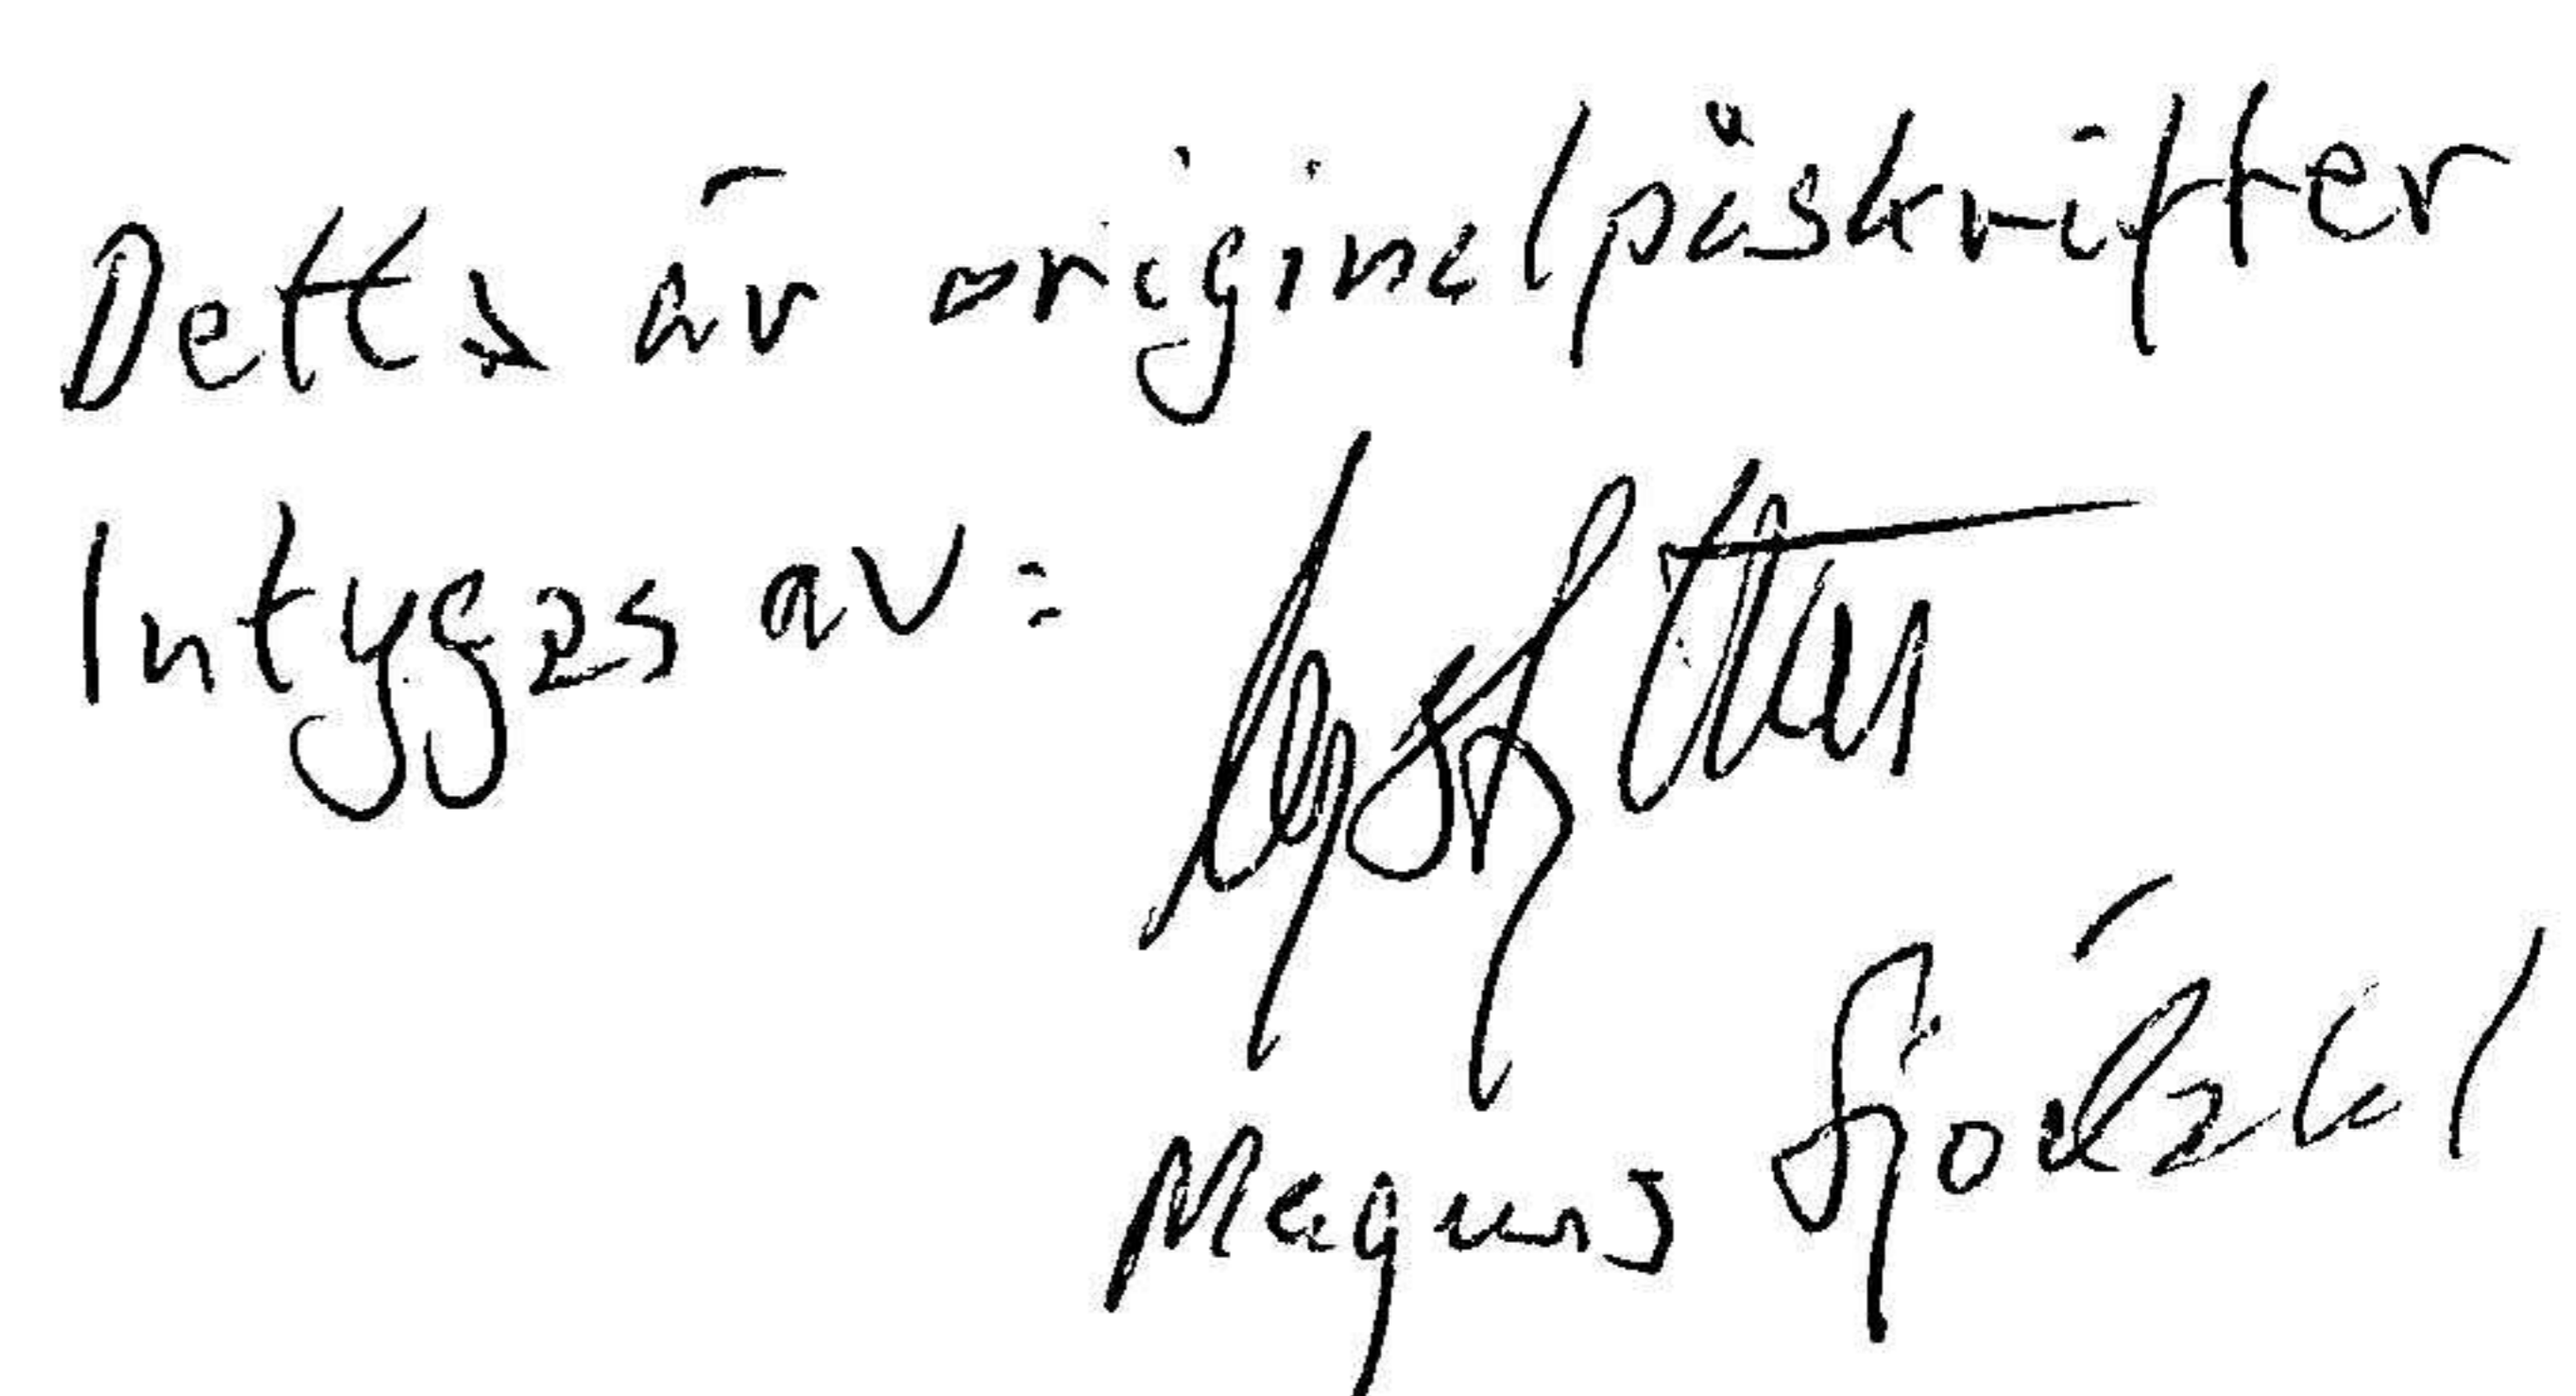 Detta är originalpåskrifter
Intygas av:
Magnus Sjödahl